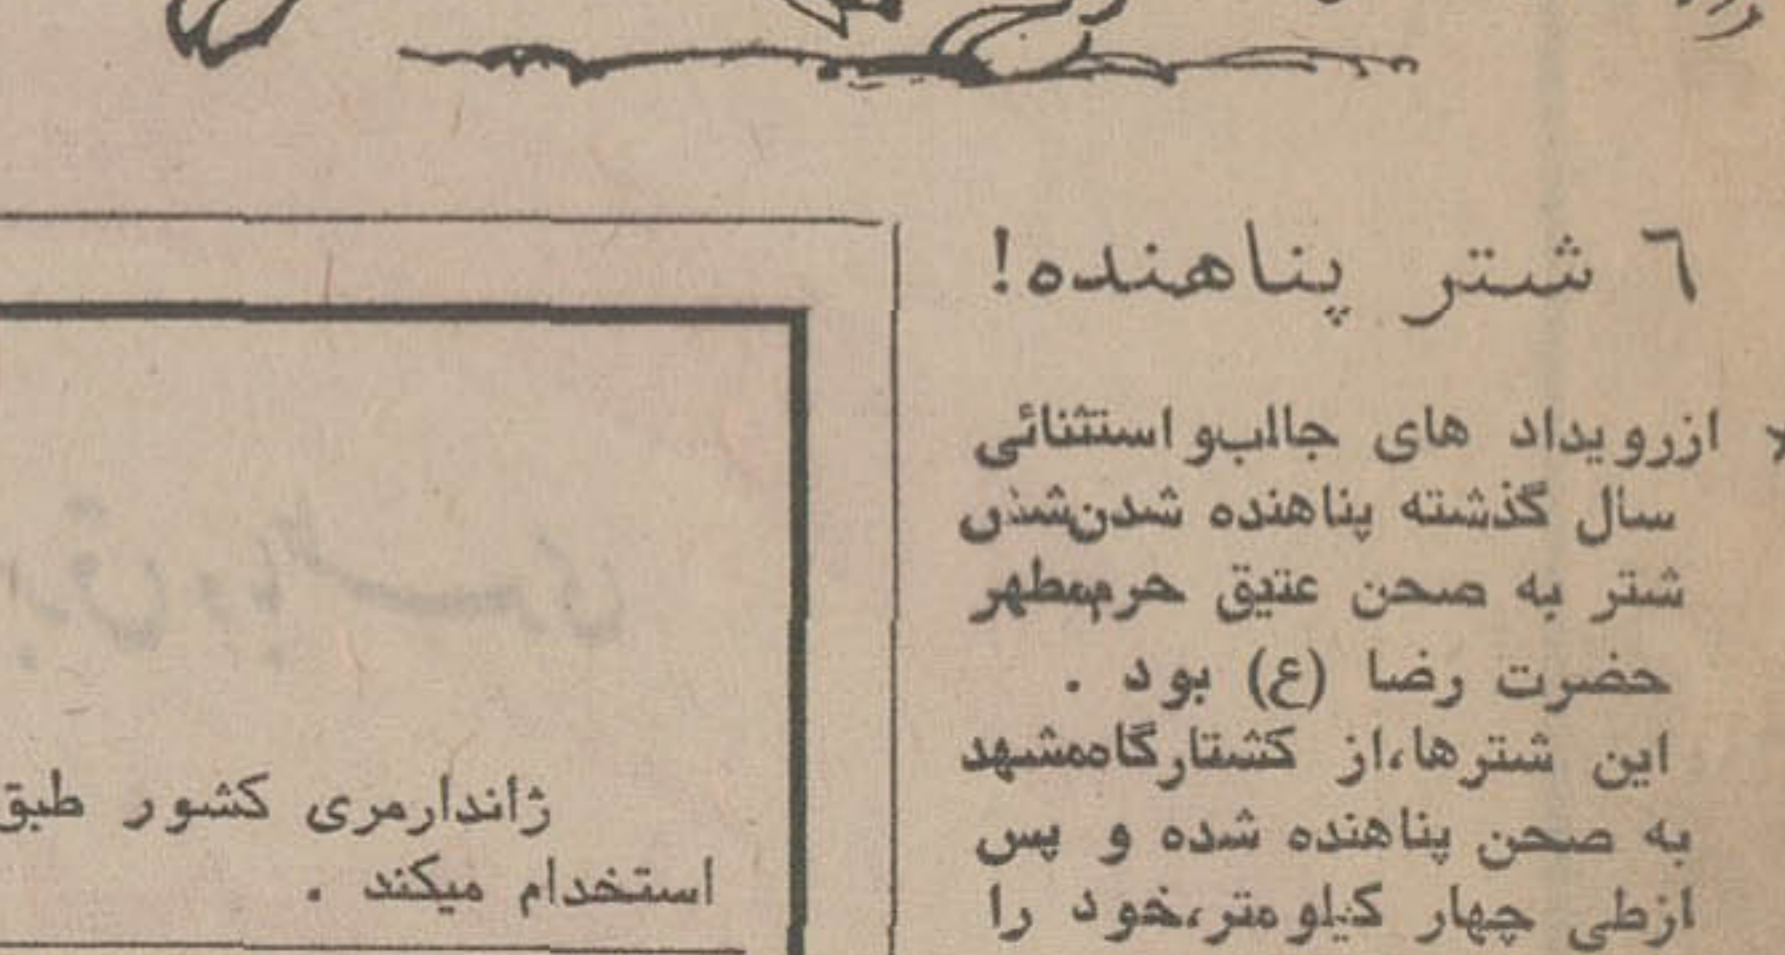 ٦ شتر پناهنده!
ازرویداد های جالبو استثنائی
سال گذشته پناهنده شدنشش
شتر به صحن عتیق حرممطهر
حضرت رضا (ع) بود .
این شترها،از کشتارگاهمشهد
به صحن پناهنده شده و پس
ازطی چهار کیلو متر،خود را
ژاندارمری کشور طبق
استخدام میکند .